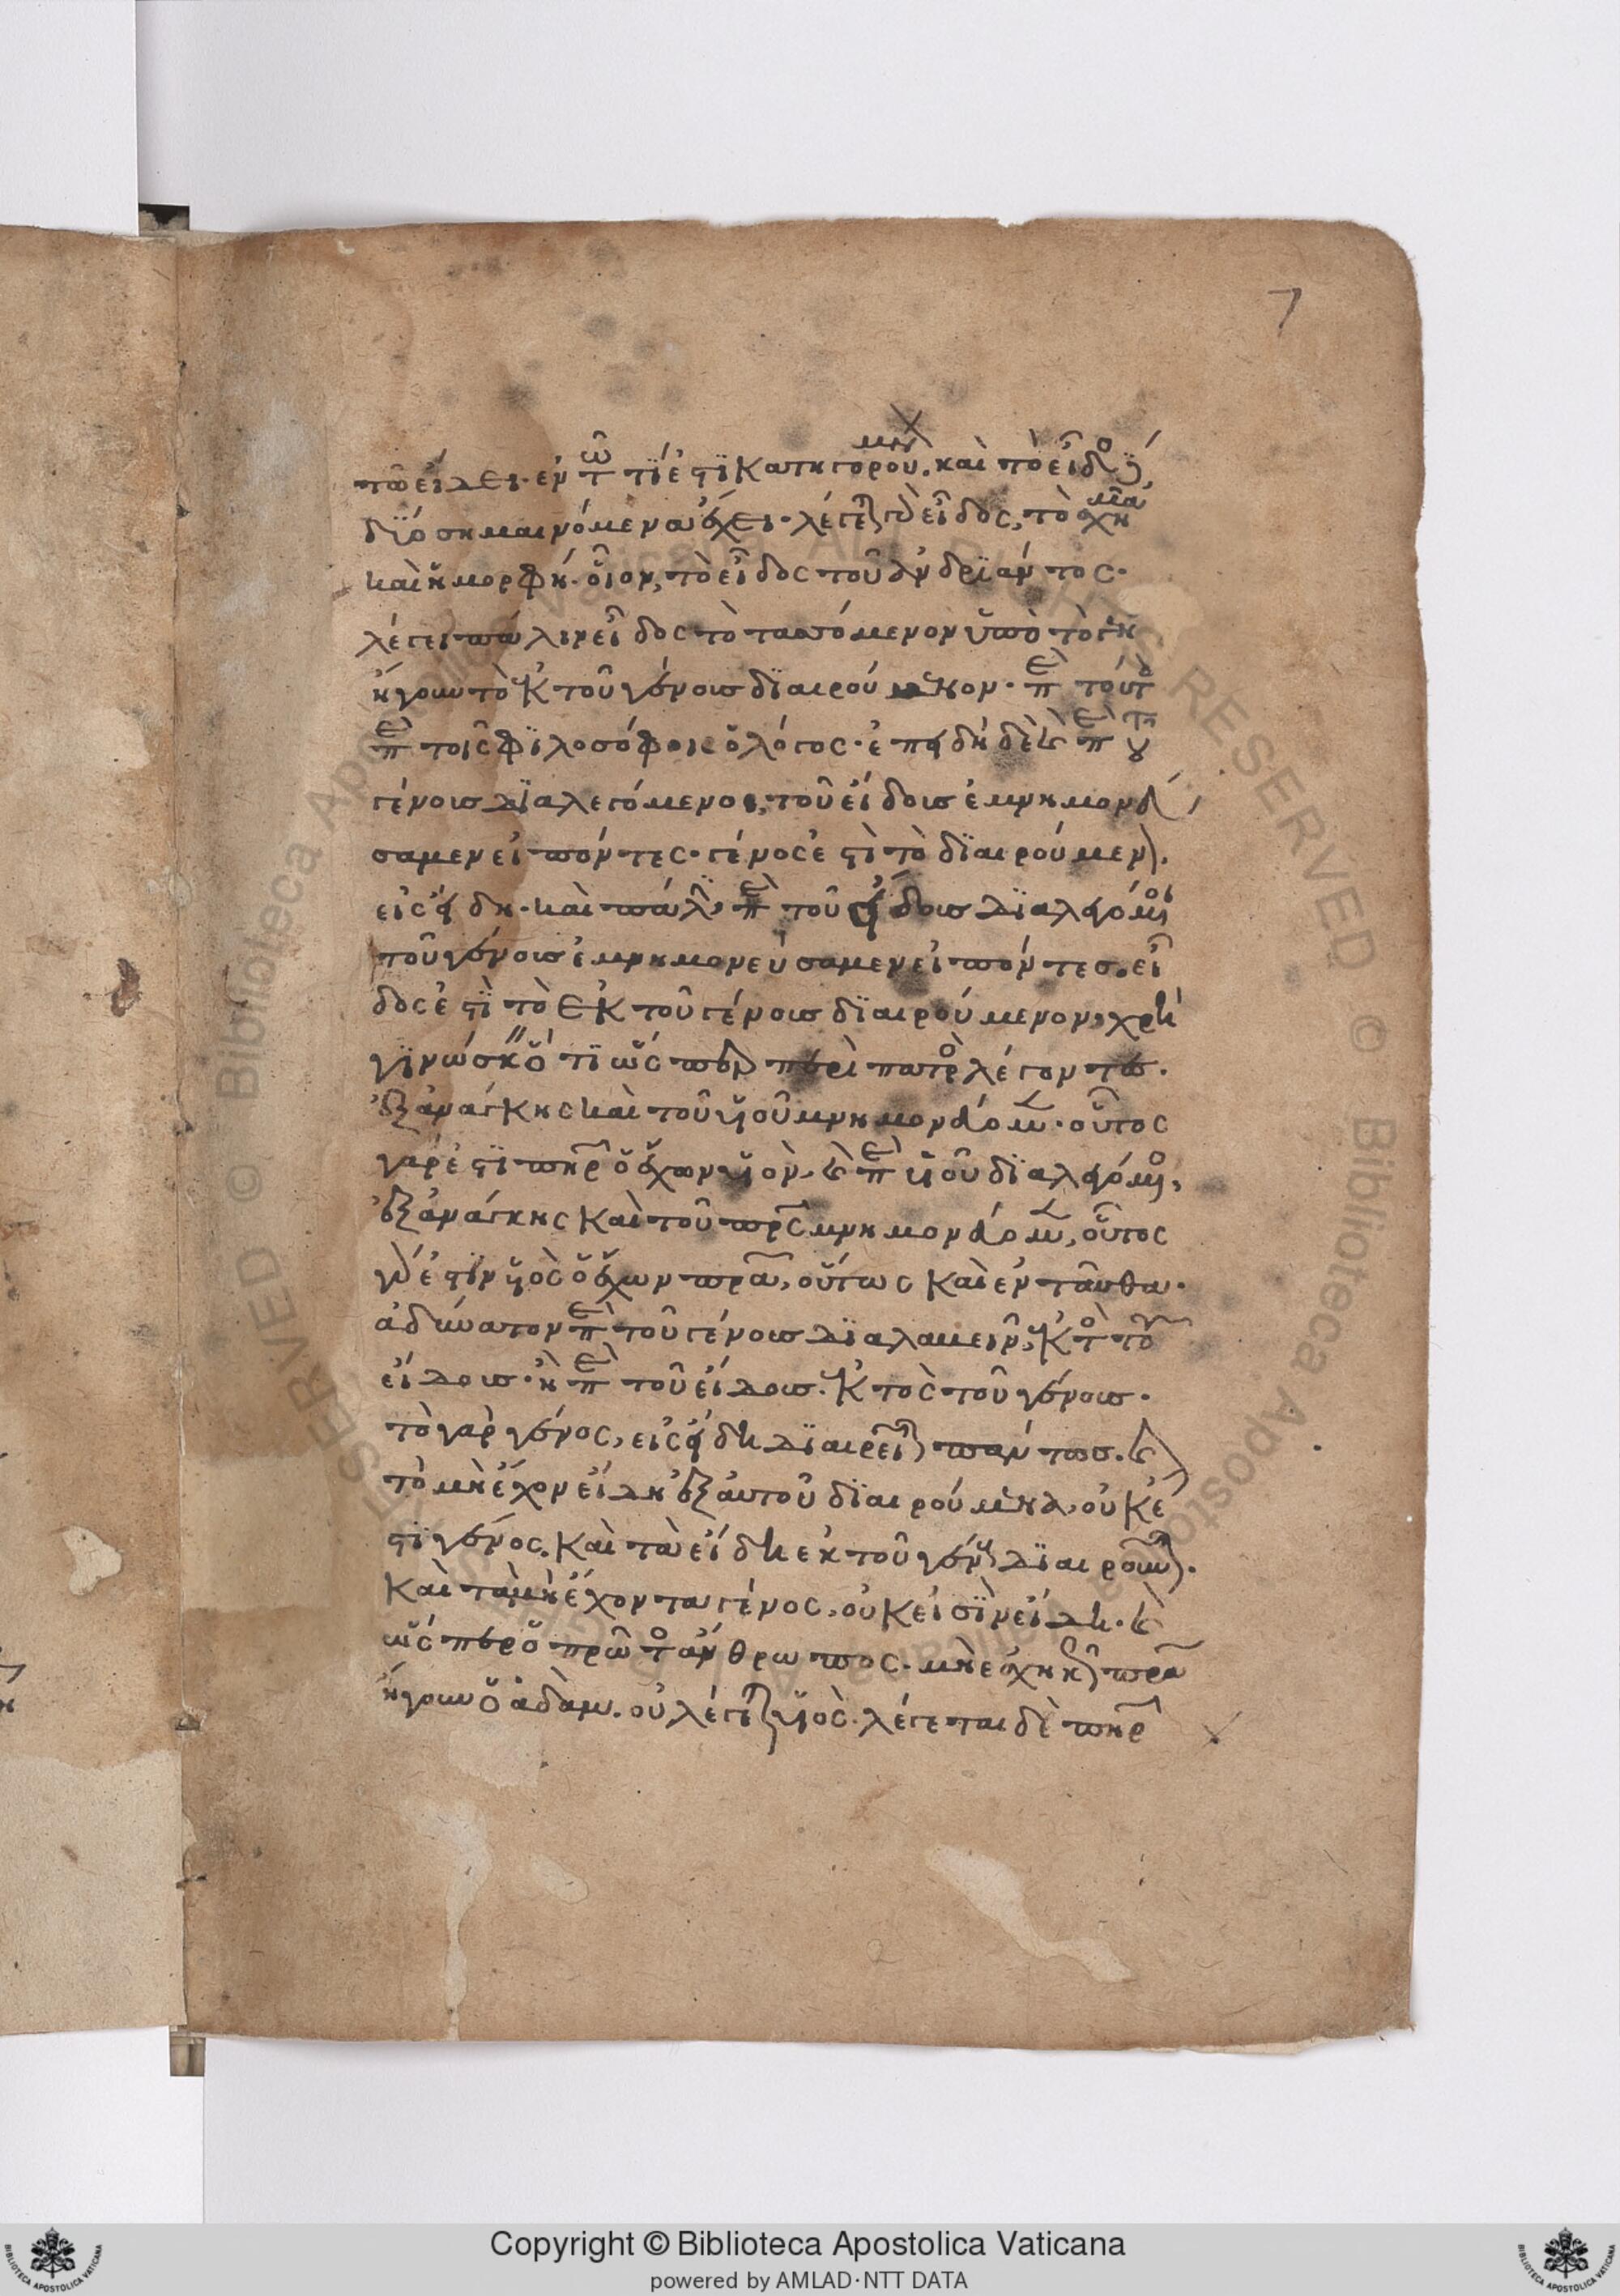 7
τῶ εἴδει ἐν τῶ τί ἐστι κατηγορούμενον. καὶ τὸ εἶδος
δύο σημαινόμενα ἔχει· λέγεται γὰρ εἶδος, τὸ σχῆμα
καὶ ἡ μορφή· οἷον, τὸ εἶδος τοῦ ἀνδριάντος·
λέγει πάλιν εἶδος τὸ ταττόμενον ὑπὸ τὸ
ἤγουν τὸ ἐκ τοῦ γένους διαιρούμενον· περὶ τούτου
περὶ τοῖς φιλοσόφοις ὁ λόγος· ἐπειδὴ δὲ καὶ περὶ τοῦ
γένους διαλεγόμενοι, τοῦ εἴδους ἐμνημονεύ
σαμεν εἰπόντες· γένος ἐστὶ τὸ διαιρούμενον
εἰς εἴδη· καὶ πάλιν περὶ τοῦ εἴδους διαλεγόμενοι
τοῦ γένους ἐμνημονεύσαμεν εἰπόντες. εἶ
δος ἐστὶ τὸ ἐκ τοῦ γένους διαιρούμενον, χρὴ
γινώσκειν ὅτι ὥσπερ περὶ πατρὸς λέγοντες.
ἐξ ἀνάγκης καὶ τοῦ υἱοῦ μνημονεύομεν· οὗτος
γάρ ἐστι πατὴρ ὁ ἔχων υἱόν. καὶ περὶ υἱοῦ διαλεγόμενοι,
ἐξ ἀνάγκης καὶ τοῦ πατρὸς μνημονεύομεν, οὗτος
γάρ ἐστιν υἱὸς ὁ ἔχων πατέρα, οὕτως καὶ ἐνταῦθα.
ἀδύνατον περὶ τοῦ γένους διαλαβεῖν, ἐκτὸς τοῦ
εἴδους· ἢ περὶ τοῦ εἴδους. ἐκτὸς τοῦ γένους.
τὸ γὰρ γένος, εἰς εἴδη διαιρεῖται πάντως. καὶ
τὸ μὴ ἔχον εἴδη ἐξ αὐτοῦ διαιρούμενα, οὐκ ἔ
στι γένος. καὶ τὰ εἴδη ἐκ τοῦ γένους διαιροῦνται.
καὶ τὰ μὴ ἔχοντα γένος, οὐκ εἰσὶν εἴδη. καὶ
ὥσπερ ὁ πρῶτος ἄνθρωπος. μὴ ἐσχηκὼς πατέρα
ἤγουν ὁ ἀδάμ. οὐ λέγεται υἱός· λέγεται δὲ πατὴρ
Copyright © Biblioteca Apostolica Vaticana
powered by AMLAD·NTT DATA